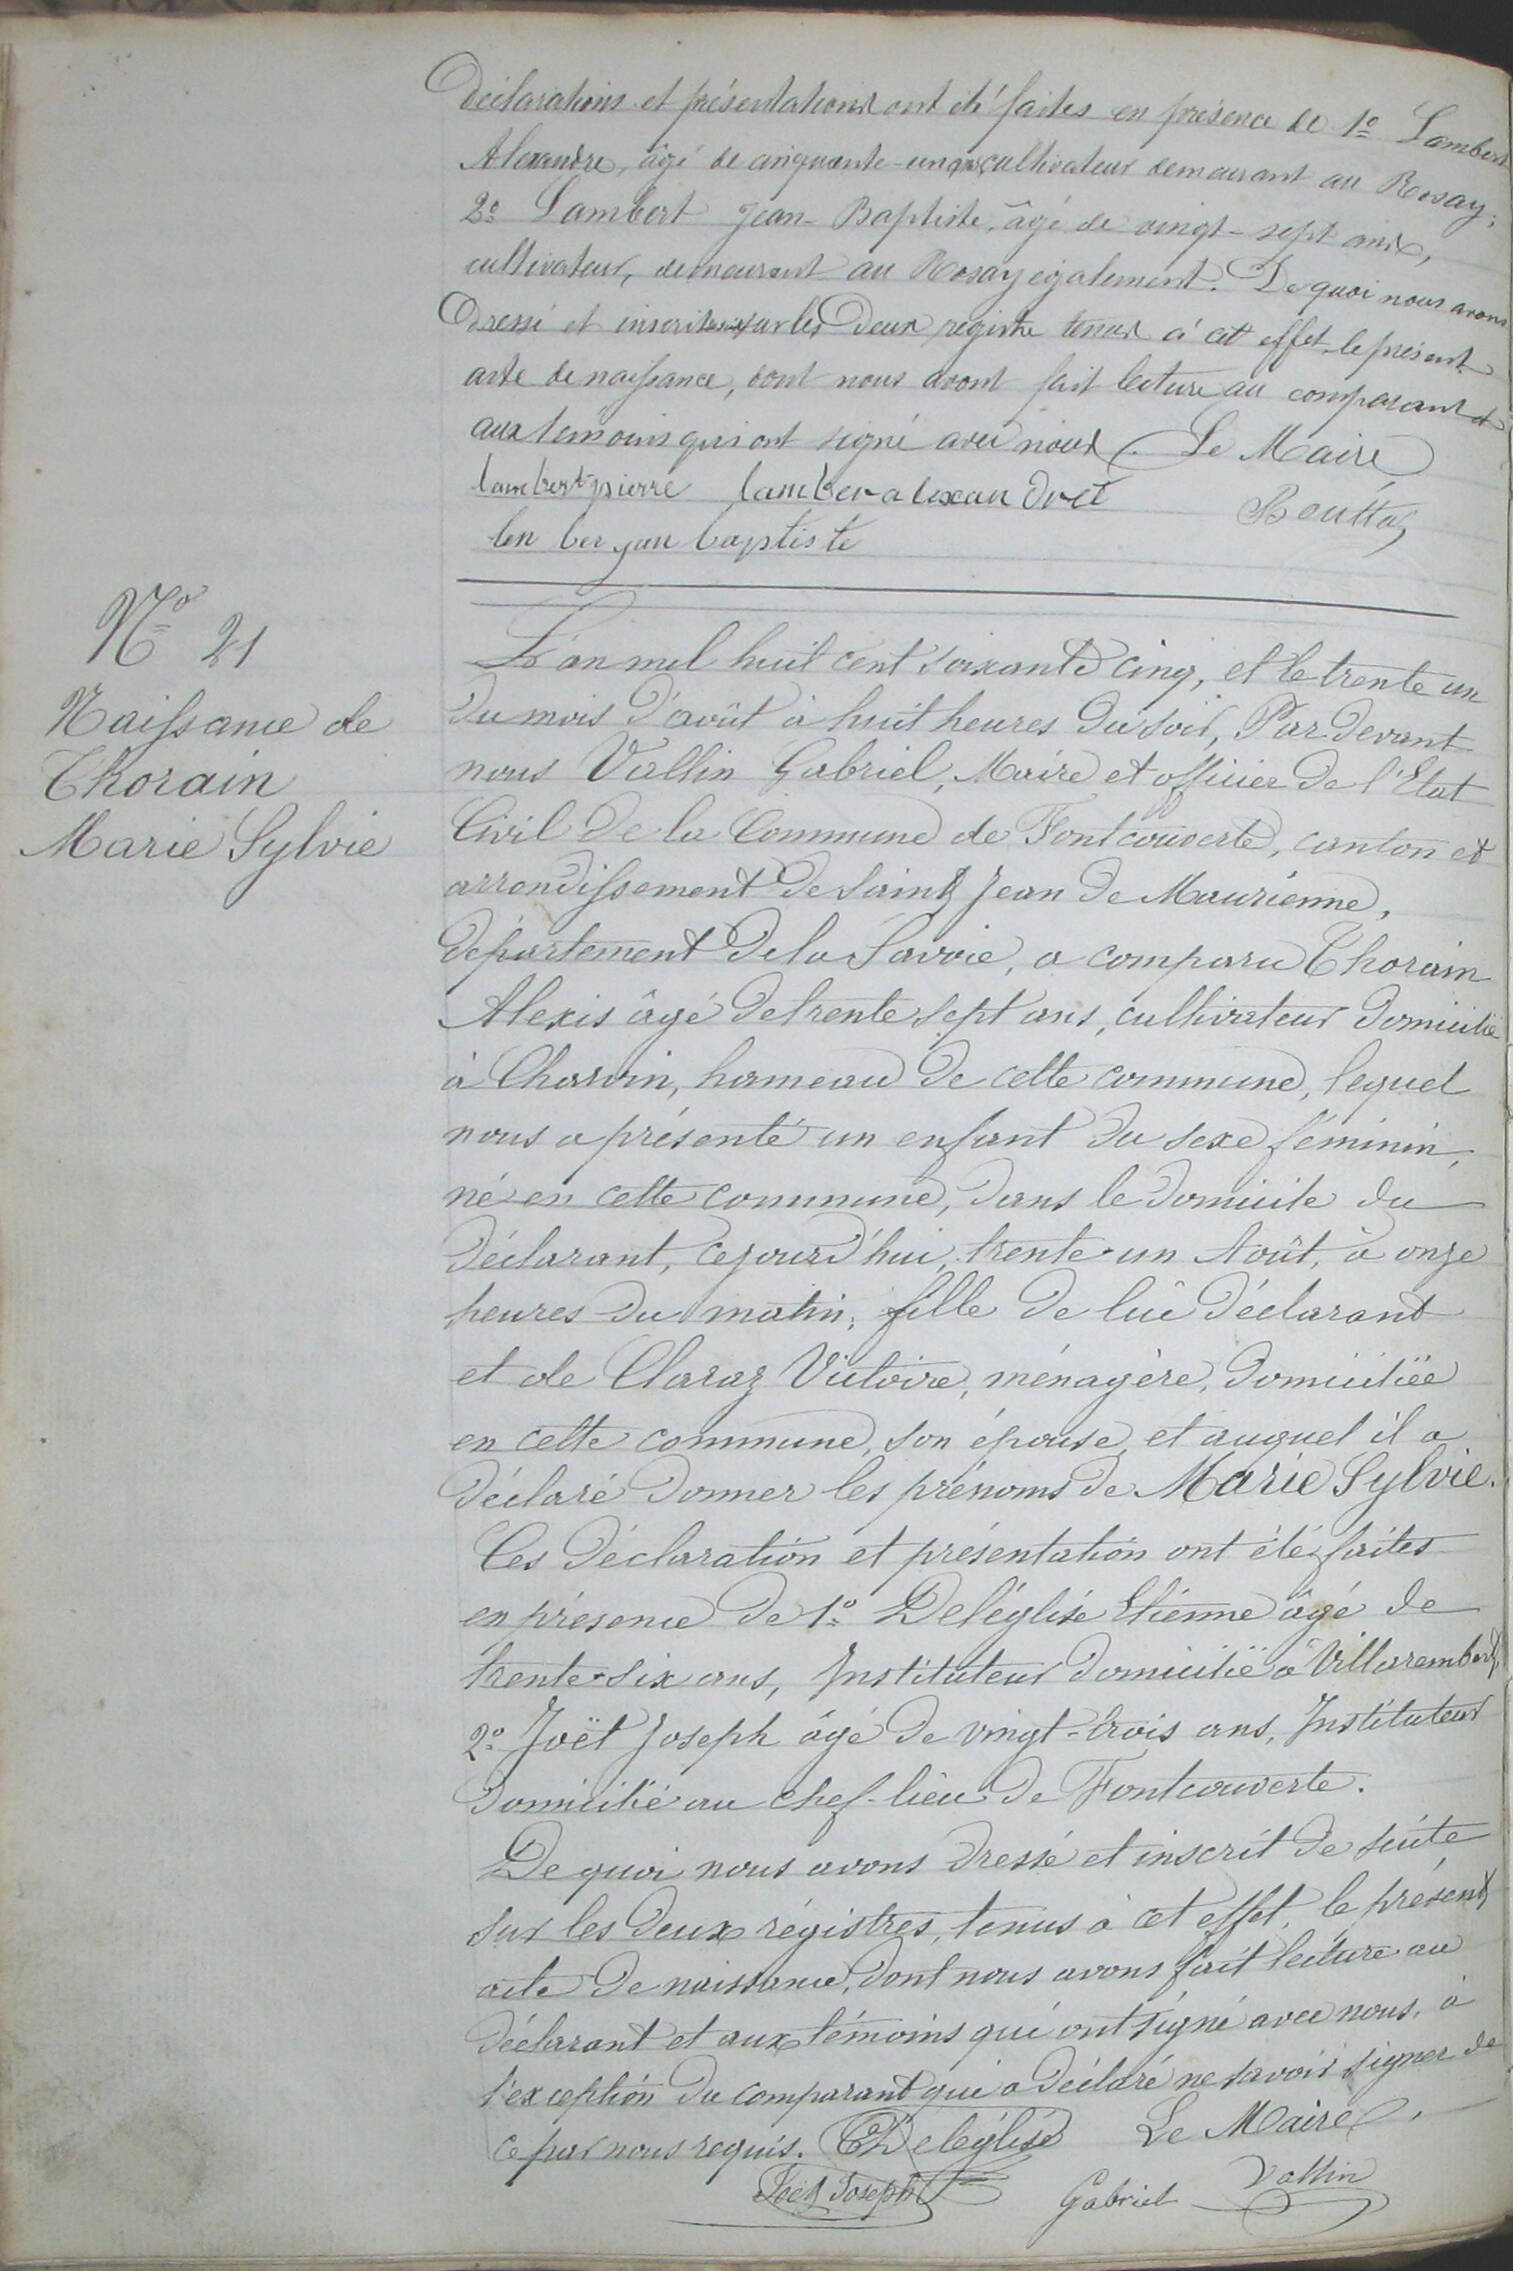 Déclarations et présentations ont été faites en présence de 1° Lambert
Alexandre, âgé de cinquante-un ans, cultivateur demeurant au Rosay;
2° Lambert Jean-Baptiste, âgé de vingt-sept ans,
cultivateur, demeurant au Rosay également. De quoi nous avons
Dressé et inscrit sur les deux registre tenus à cet effet le présent
acte de naissance, dont nous avons fait lecture au comparant et
aux témoins qui ont signé avec nous. Le Maire
lambert pierre lamber alexandre
Bouttaz
len ber jan baptiste
N° 21
Naissance de
Thorain
Marie Sylvie
L'an mil huit cent soixante cinq, et le trente un
du mois d'août à huit heures du soir, Par devant
nous Vallin Gabriel, Maire et officier de l'Etat
Civil de la Commune de Fontcouverte, canton et
arrondissement de Saint Jean de Maurienne,
département de la Savoie, a comparu Thorain
Alexis âgé de trente sept ans, cultivateur domicilié
à Charvin, hameau de cette commune, lequel
nous a présenté un enfant du sexe féminin,
né en cette commune, dans le domicile du
déclarant, cejourd'hui, trente-un Août, à onze
heures du matin, fille de lui déclarant
et de Claraz Victoire, ménagère, domiciliée
en cette commune, son épouse, et auquel il a
déclaré donner les prénoms de Marie Sylvie.
Ces déclaration et présentation ont été faites
en présence de 1° Deléglise Etienne âgé de
trente-six ans, Instituteur domicilié à Villarembert,
2° Joët Joseph âgé de vingt-trois ans, Instituteur
domicilié au chef-lieu de Fontcouverte.
De quoi nous avons dressé et inscrit de suite
sur les deux régistres, tenus à cet effet, le présent
acte de naissance, dont nous avons fait lecture au
déclarant et aux témoins qui ont signé avec nous, à
l'exception du comparant qui a déclaré ne savoir signer de
ce par nous requis. Deléglise Le Maire,
Joët Joseph Gabriel Vallin